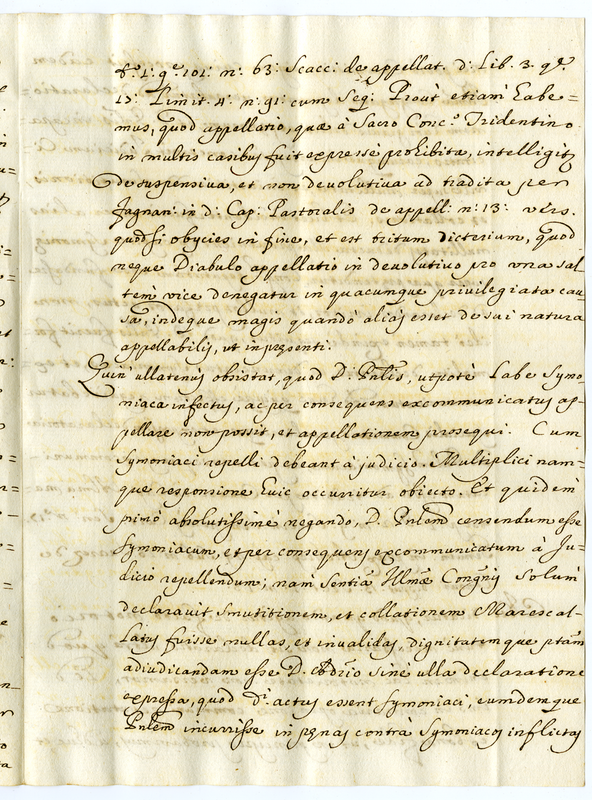 t. 1. q. 101. n.º 63: Scacc: de appellat. d: Lib. 3. qº.
15: Limit. 4. n.º 91: cum Seq: Prout etiam habe=
mus, quod appellatio, quæ à Sacro Conc.º Tridentino
in multis casibus fuit expressè prohibita, intelligitʒ
de suspensiva, et non devolutiva ad tradita per
Fagnan: in d: Cap: Pastoralis de appell: n.º 13: vers.
quodsi obycies in fine, et est tritum dicterium, quod
neque Diabulo appellatio in devolutivo pro una sal
tem vice denegatur in quacunque privilegiata cau
sa, indeque magis quandò alias esset de sui natura
appellabilis, ut in pręsenti.
Quin ullatenus obsistat, quod D: Pnlis, utpotè Labe Symo=
niaca infectus, ac per consequens excommunicatus ap=
pellare non possit, et appellationem prosequi. Cum
Symoniaci repelli debeant à judicio. Multiplici nam=
que responsione huic occurritur obiecto. Et quidem
primò absolutissimè negando, D. Pnlem censendum esse
Symoniacum, et per consequens excommunicatum à Ju=
dicio repellendum; nam Sentia Illmæ Congñis solum
declaravit Smutitionem, et collationem Marescal=
latus fuisse nullas, et invalidas, dignitatemque ptam
adiudicandam esse D. Adrio sine ulla declaratione
expressa, quod d: actus essent symoniaci, eumdemque
Pnlem incurrisse in pęnas contrà Symoniacos inflictas